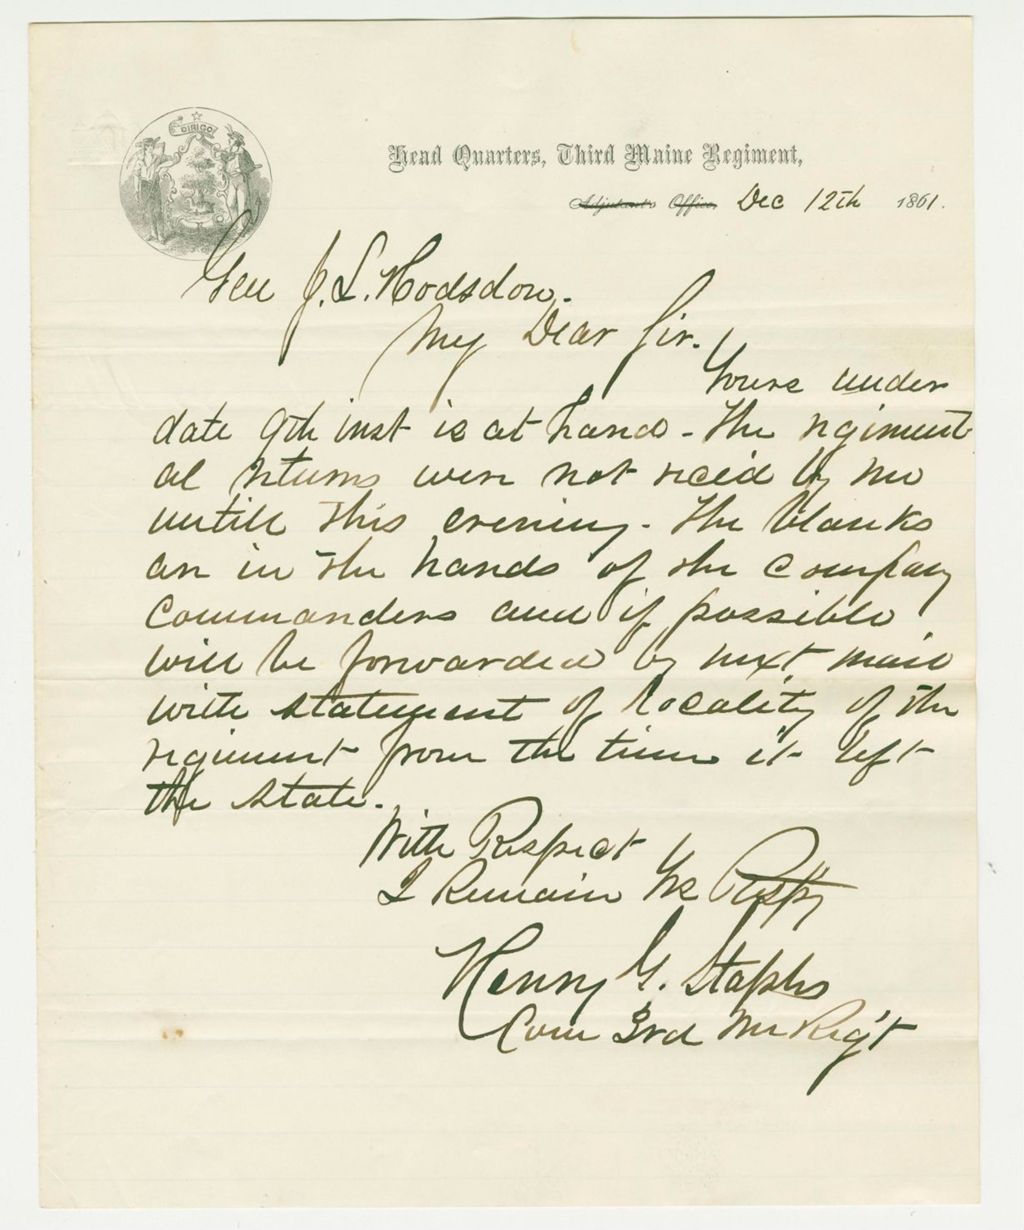 DIRIGO
Head Quarters, Third Maine Regiment,
Adjutant's Office, Dec 12th 1861.
Gen J. L. Hodsdon.
My Dear Sir.
Yours under
date 9th inst is at hand - The regiment
al returns were not recid by me
untill this evening - The blanks
are in the hands of the Company
Commanders and if possible
will be forwarded by next mail
with statement of locality of the
regiment from the time it left
the state.
With Respect
I Remain Yrs Respty
Henry G. Staples
Com 3rd Me Reg't